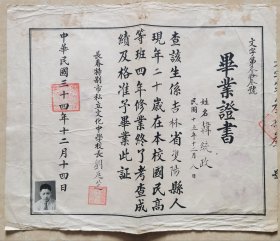 畢業證書
姓名 韓 政
民國十三年十二月八日
查該生係吉林省雙陽縣人
現年二十歲在本校國民高
等班四年修業終了考查成
績及格准予畢業此証
長春特別市私立文化中學校長劉
中華民國三十四年十二月十四日